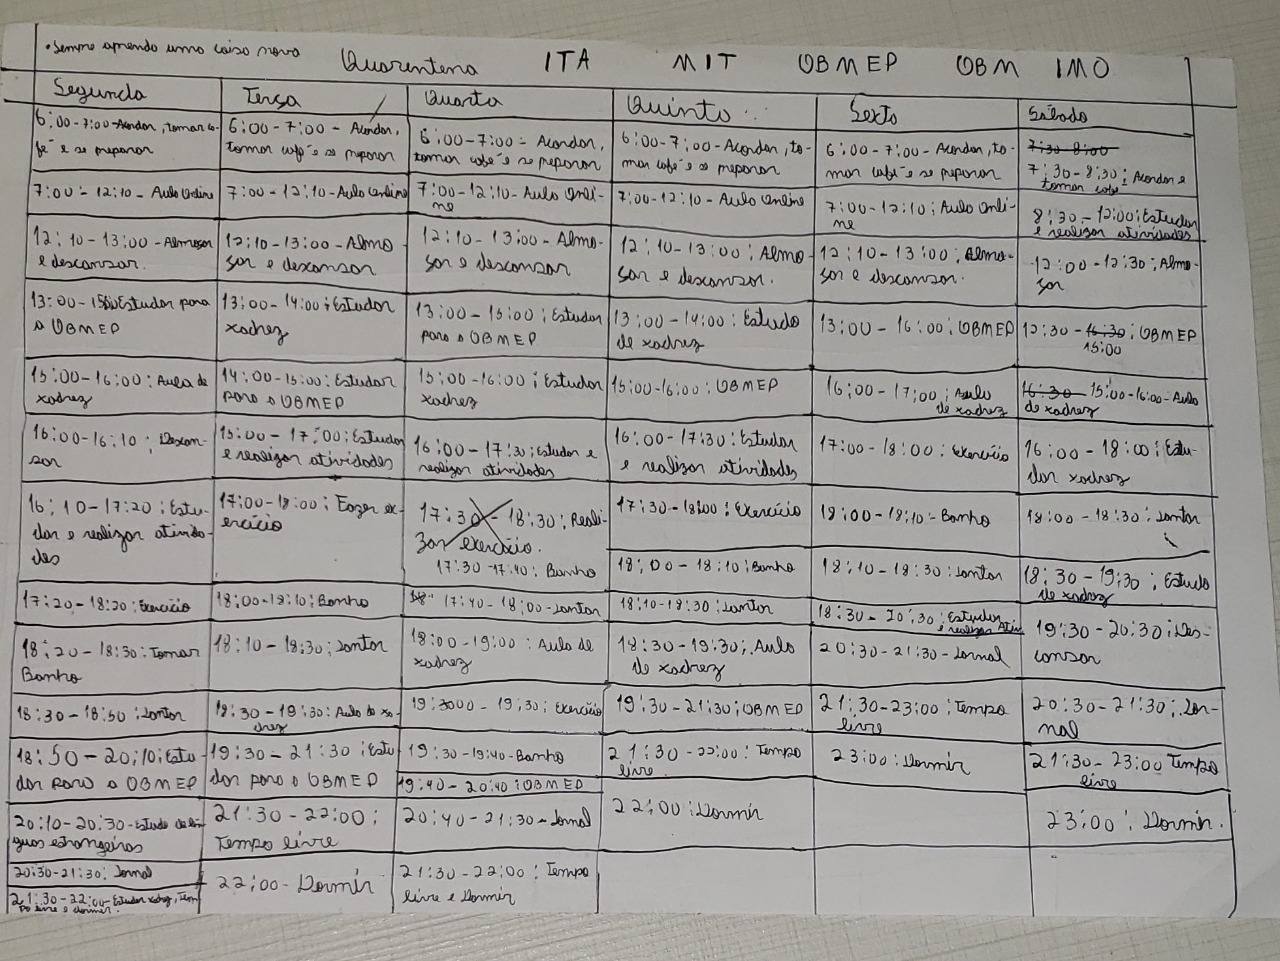 • Sempre aprendo uma coisa nova
Quarentena ITA MIT OBMEP OBM IMO
Segunda
6:00-7:00-Acordar, tomar ca-
fé e se preparar
7:00-12:10-Aula Online
12:10-13:00-Almoçar
e descansar.
13:00-15:00:Estudar para
a OBMEP
15:00-16:00: Aula de
xadrez
16:00-16:10: Descan-
sar
16:10-17:20: Estu-
dar e realizar ativida-
des
17:20-18:20: Exercício
18:20-18:30: Tomar
Banho
18:30-18:50: Jantar
18:50-20:10: Estu-
dar para a OBMEP
20:10-20:30-Estudo de lín-
guas estrangeiras
20:30-21:30: Jornal
21:30-22:00-Estudar xadrez, Tem-
po livre e dormir.
Terça
6:00-7:00-Acordar,
tomar café e se preparar
7:00-12:10-Aula Online
12:10-13:00-Almo-
çar e descansar
13:00-14:00: Estudar
xadrez
14:00-15:00: Estudar
para a OBMEP
15:00-17:00: Estudar
e realizar atividades
17:00-18:00: Fazer ex-
ercício
18:00-18:10: Banho
18:10-18:30: Jantar
18:30-19:30: Aula de xa-
drez
19:30-21:30: Estu-
dar para a OBMEP
21:30-22:00:
Tempo livre
22:00-Dormir
Quarta
6:00-7:00-Acordar,
tomar café e se preparar
7:00-12:10-Aula Onli-
ne
12:10-13:00-Almo-
çar e descansar
13:00-15:00: Estudar
para a OBMEP
15:00-16:00: Estudar
xadrez
16:00-17:30: Estudar e
realizar atividades
17:30-18:30: Reali-
zar exercício.
17:30-17:40: Banho
17:40-18:00-Jantar
18:00-19:00: Aula de
xadrez
19:00-19:30: Exercício
19:30-19:40-Banho
19:40-20:40: OBMEP
20:40-21:30-Jornal
21:30-22:00: Tempo
livre e Dormir
Quinta
6:00-7:00-Acordar, to-
mar café e se preparar
7:00-12:10-Aula Online
12:10-13:00: Almo-
çar e descansar.
13:00-14:00: Estudo
de xadrez
15:00-16:00: OBMEP
16:00-17:30: Estudar
e realizar atividades
17:30-18:00: Exercício
18:00-18:10: Banho
18:10-18:30: Jantar
18:30-19:30: Aula
de xadrez
19:30-21:30: OBMEP
21:30-22:00: Tempo
livre
22:00: Dormir
Sexta
6:00-7:00-Acordar, to-
mar café e se preparar
7:00-12:10: Aula Onli-
ne
12:10-13:00: Almo-
çar e descansar.
13:00-16:00: OBMEP
16:00-17:00: Aula
de xadrez
17:00-18:00: Exercício
18:00-18:10-Banho
18:10-18:30: Jantar
18:30-20:30: Estudar
e realizar Ativ.
20:30-21:30-Jornal
21:30-23:00: Tempo
livre
23:00: Dormir
Sábado
7:30-8:00
7:30-8:30: Acordar e
tomar café
8:30-12:00: Estudar
e realizar atividades
12:00-12:30: Almo-
çar
12:30-16:30: OBMEP
15:00
16:30 15:00-16:00-Aula
de xadrez
16:00-18:00: Estu-
dar xadrez
18:00-18:30: Jantar
18:30-19:30: Estudo
de xadrez
19:30-20:30: Des-
cansar
20:30-21:30: Jor-
nal
21:30-23:00 Tempo
livre
23:00: Dormir.